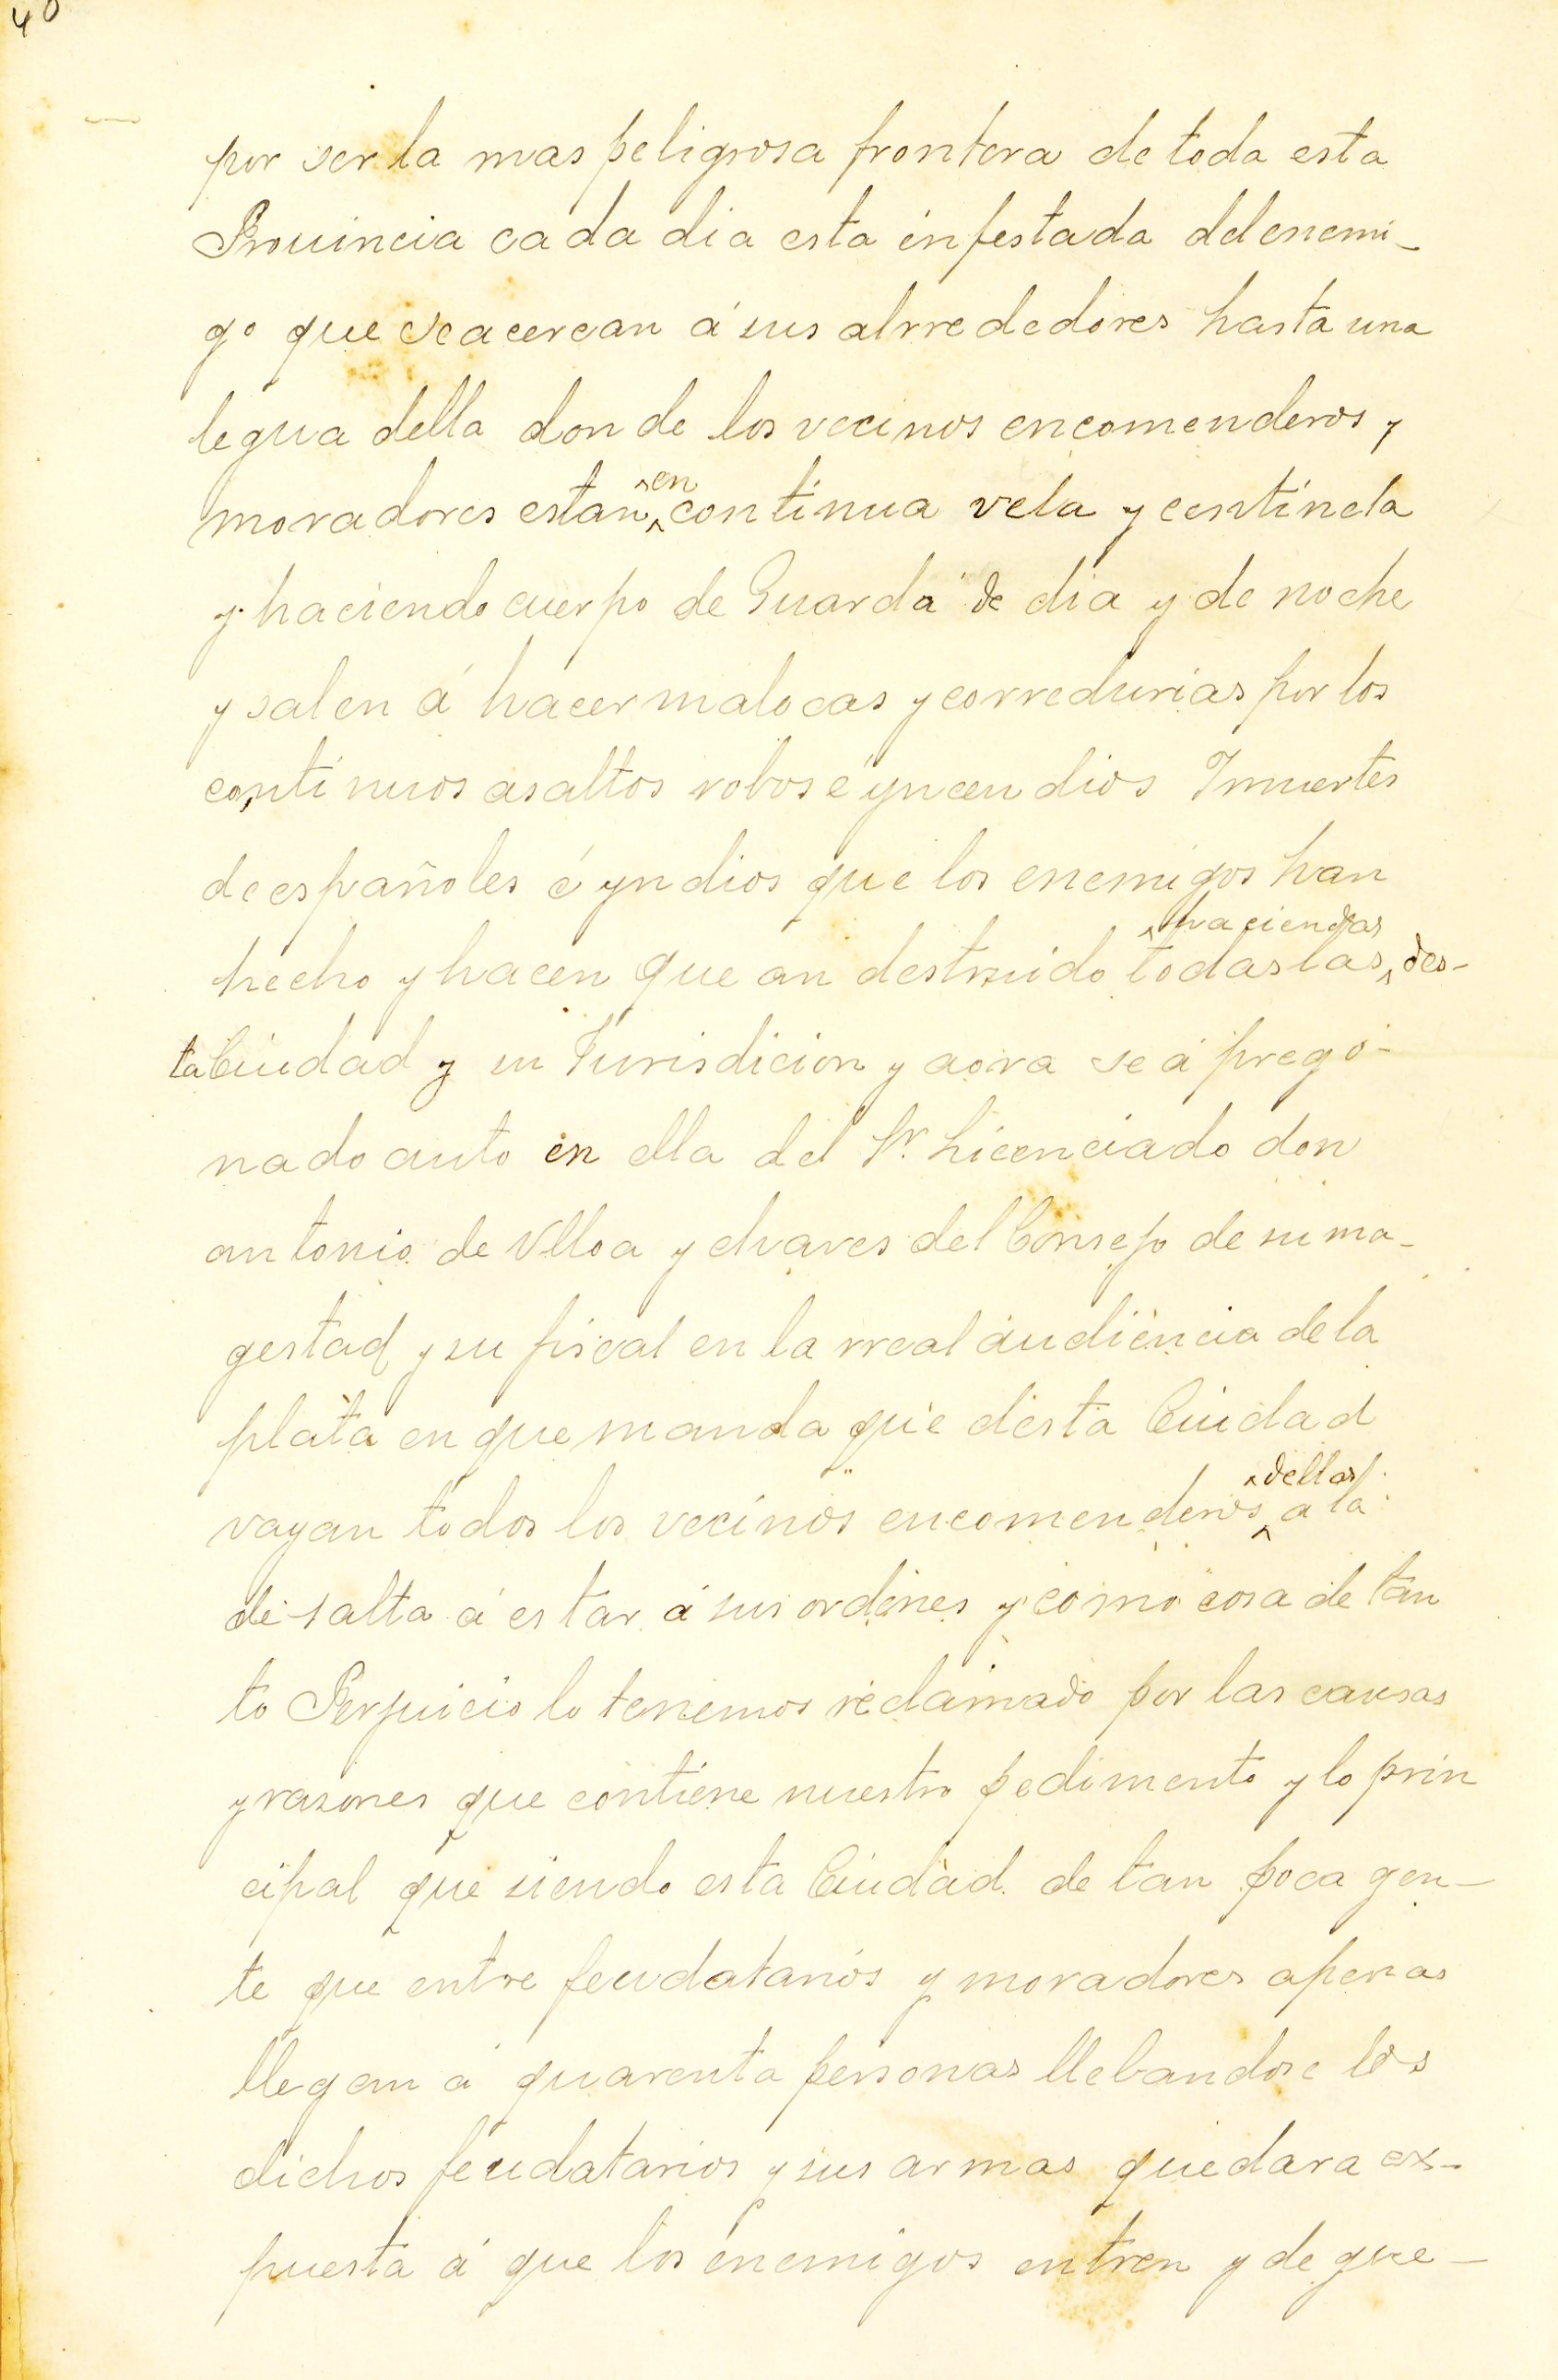 40
por ser la mas peligrosa frontera de toda esta
Prouincia cada dia esta ynfestada del enemi-
go que se acercan á sus alrrededores hasta una
legua della donde los vecinos encomenderos y
moradores estan ^en continua vela y centinela
y haciendo cuerpo de Guarda de dia y de noche
y salen á hacer malocas y corredurias por los
continuos asaltos robos e yncendios Y muertes
de españoles é yndios que los enemigos han
hecho y hacen que an destruido todas las ^haciendas des-
ta Ciudad y su Jurisdicion y aora se á prego-
nado auto en ella del Sr. Licenciado don
antonio de Vlloa y chaves del Consejo de su ma-
gestad y su fiscal en la rreal audiencia de la
plata en que manda que desta Ciudad
vayan todos los vecinos encomenderos ^dellas a la
de salta á estar á sus ordenes y como cosa de tan
to Perjuicio lo tenemos reclamado por las causas
y rasones que contiene nuestro pedimento y lo prin
cipal que siendo esta Ciudad de tan poca gen-
te que entre feudatarios y moradores apenas
llegan á quarenta personas llebandose los
dichos feudatarios y sus armas quedara ex-
puesta á que los enemigos entren y degue-